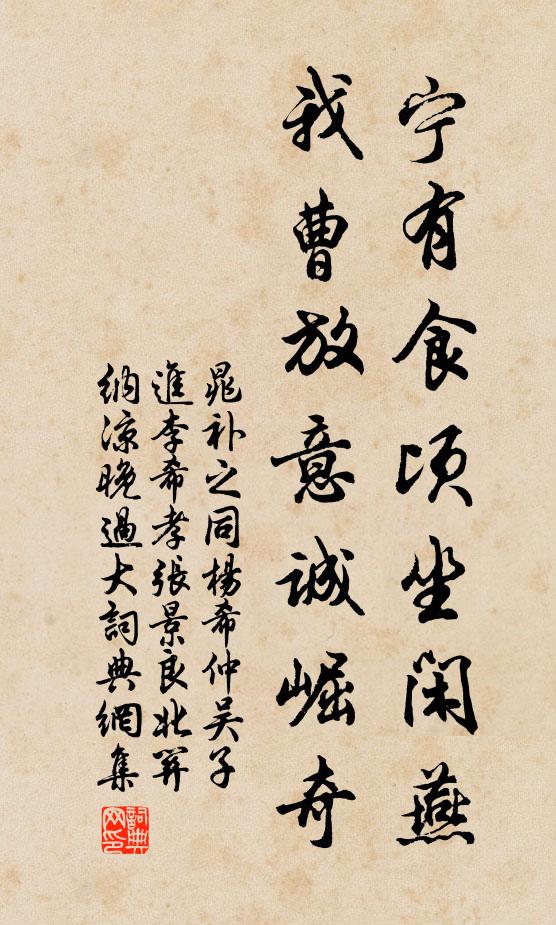 宁有食顷坐闲燕
我曹放意诚崛奇
晁补之同杨希仲吴子
進李希孝張景良北郭
纳凉晚過大詞典網集
詞典网印